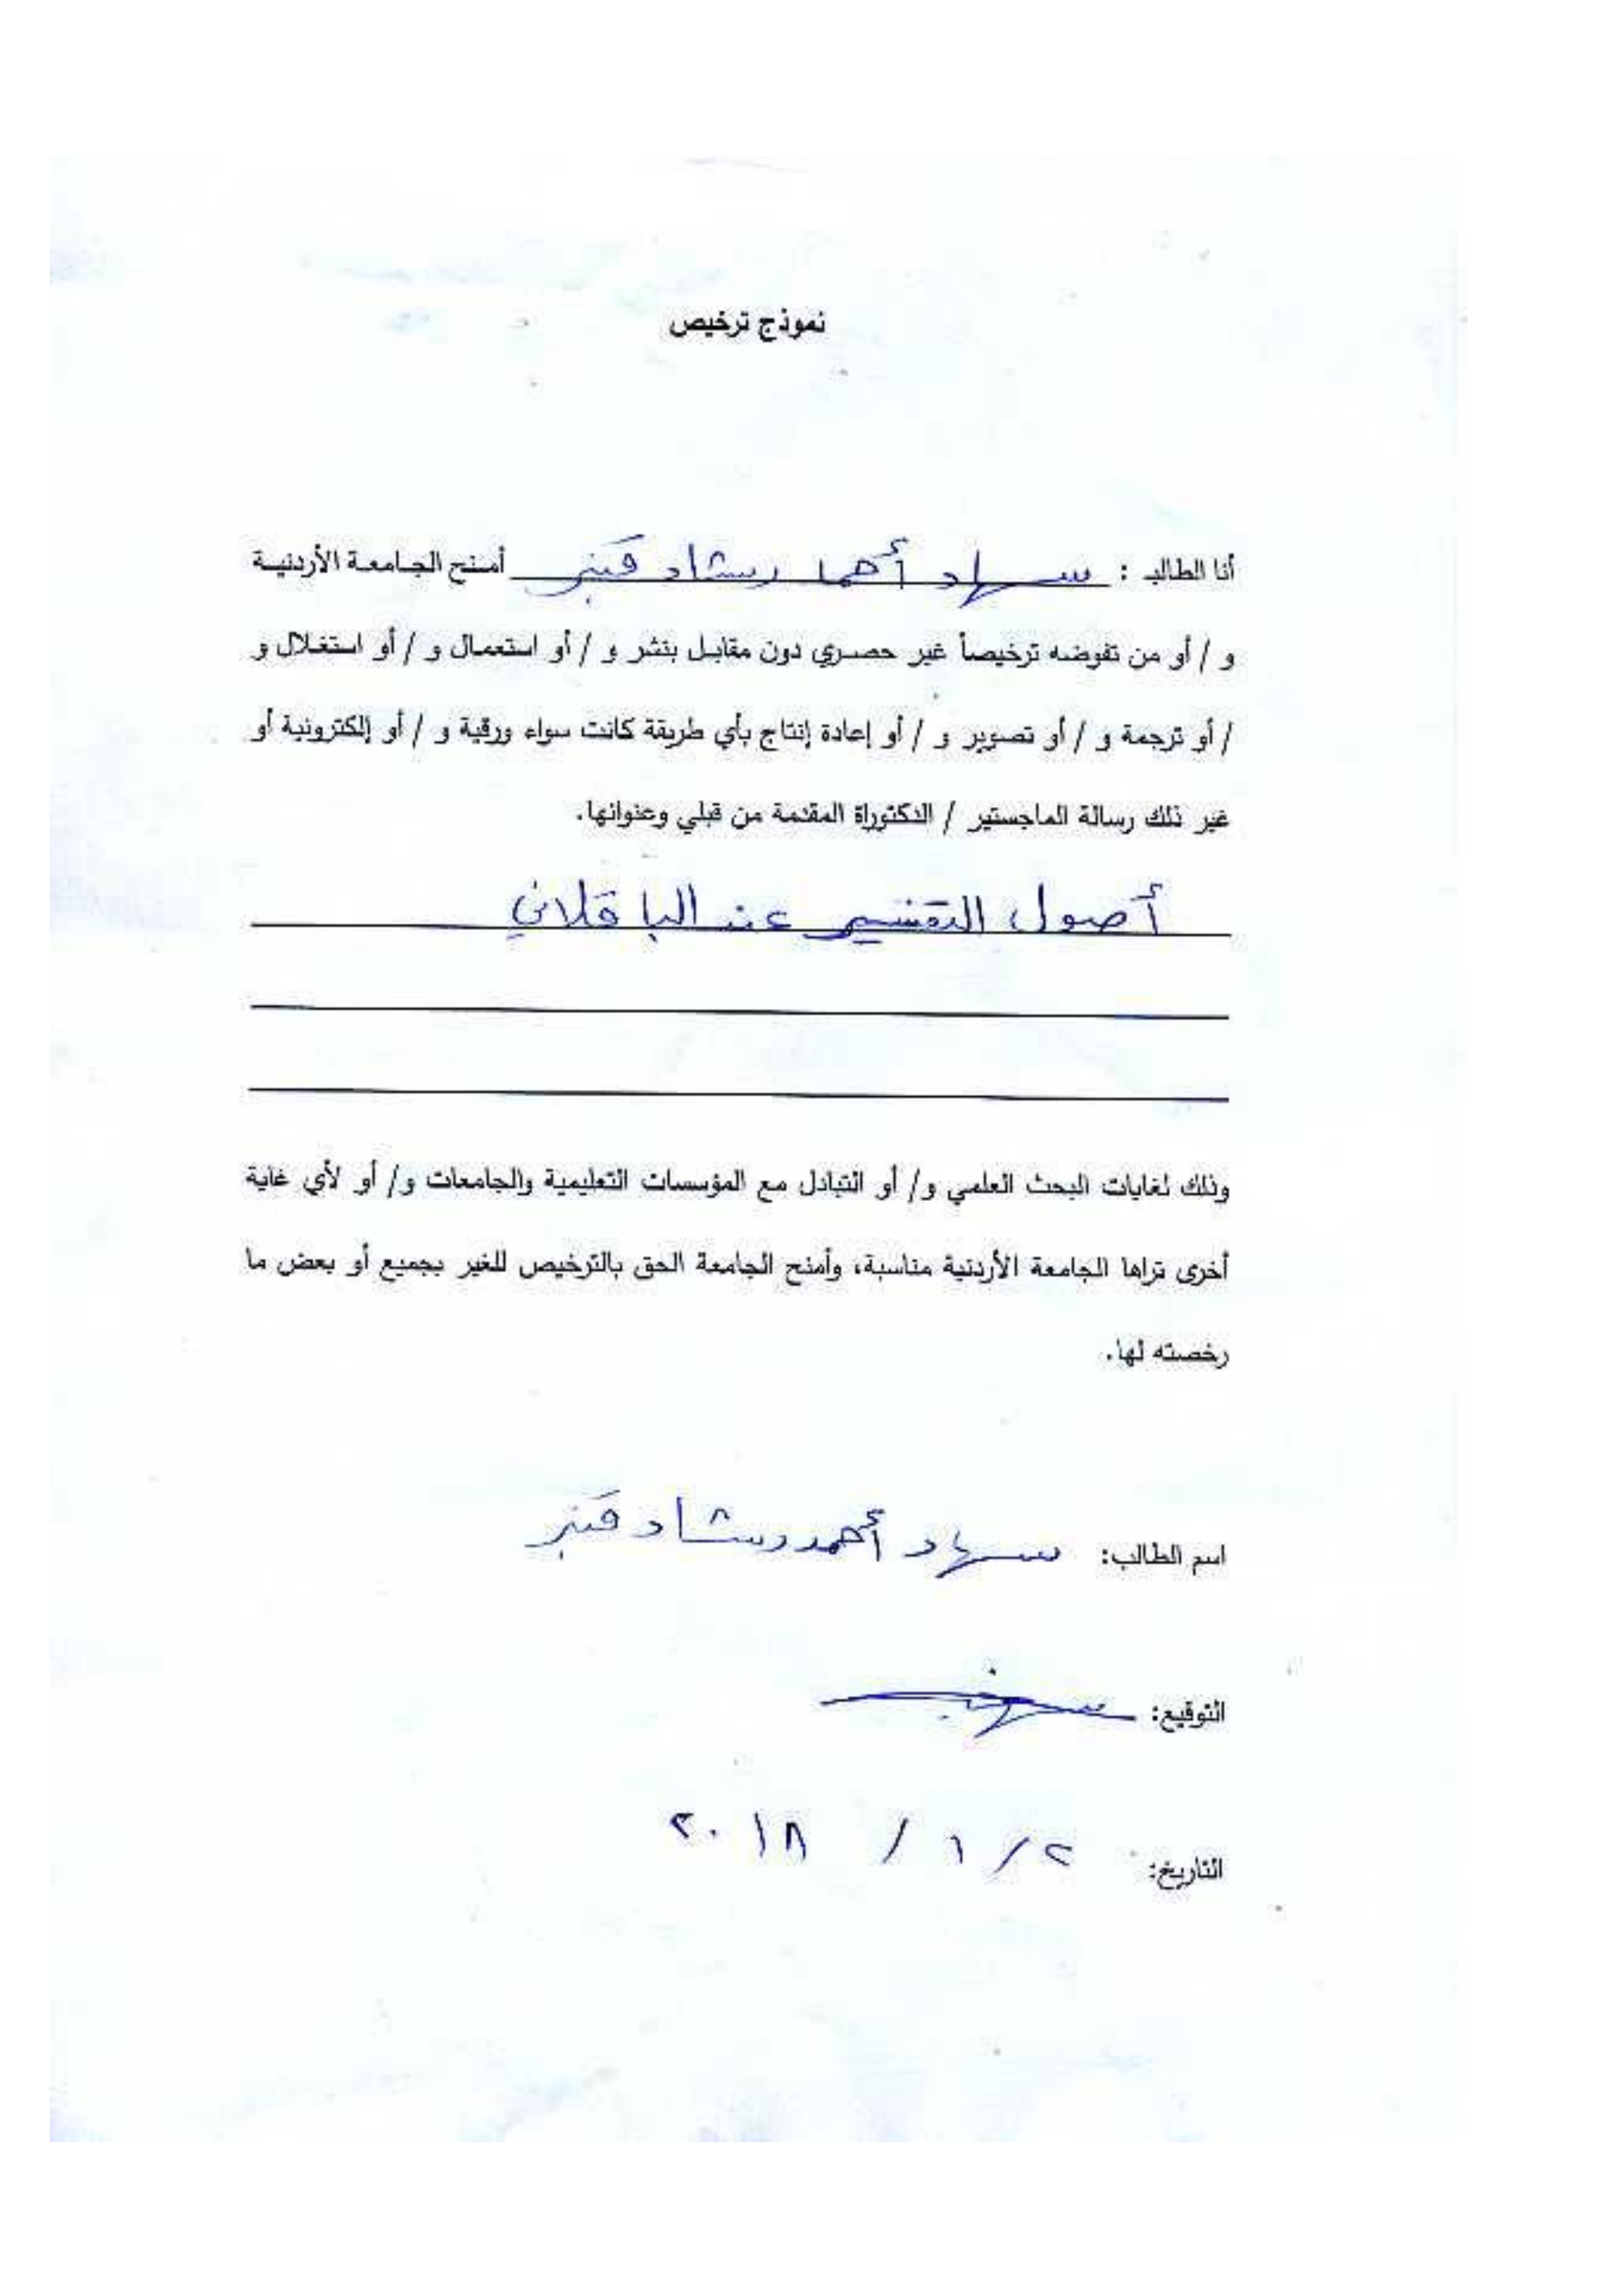 نموذج ترخيص
أنا الطالب : سهاد أحمد رشاد قنبر أمنح الجامعة الأردنية
و / أو من تفوضه ترخيصاً غير حصري دون مقابل بنشر و / أو استعمال و / أو استغلال و
/ أو ترجمة و / أو تصوير و / أو إعادة إنتاج بأي طريقة كانت سواء ورقية و / أو إلكترونية أو
غير ذلك رسالة الماجستير / الدكتوراة المقدمة من قبلي وعنوانها.
أصول التفسير عند الباقلاني
وذلك لغايات البحث العلمي و/ أو التبادل مع المؤسسات التعليمية والجامعات و/ أو لأي غاية
أخرى تراها الجامعة الأردنية مناسبة، وأمنح الجامعة الحق بالترخيص للغير بجميع أو بعض ما
رخصته لها.
اسم الطالب: سهاد أحمد رشاد قنبر
التوقيع:
التاريخ: ٢ / ١ / ٢٠١٨